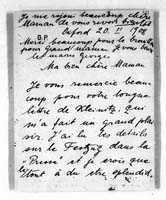 Je me rejoui beaucoup chère
Maman de vous revoir
Oxford 20. II 1908
Merci beaucoup pour la
pour grand'maman je vous
et mes Georges
Ma bien chère Maman
Je vous remercie beau-
coup pour votre longue
lettre de Kleinitz qui
m'a fait un grand plai-
sir. J'ai lu les détails
sur le Festzug dans la
"Presse" et je crois que
tout a du être splendid.